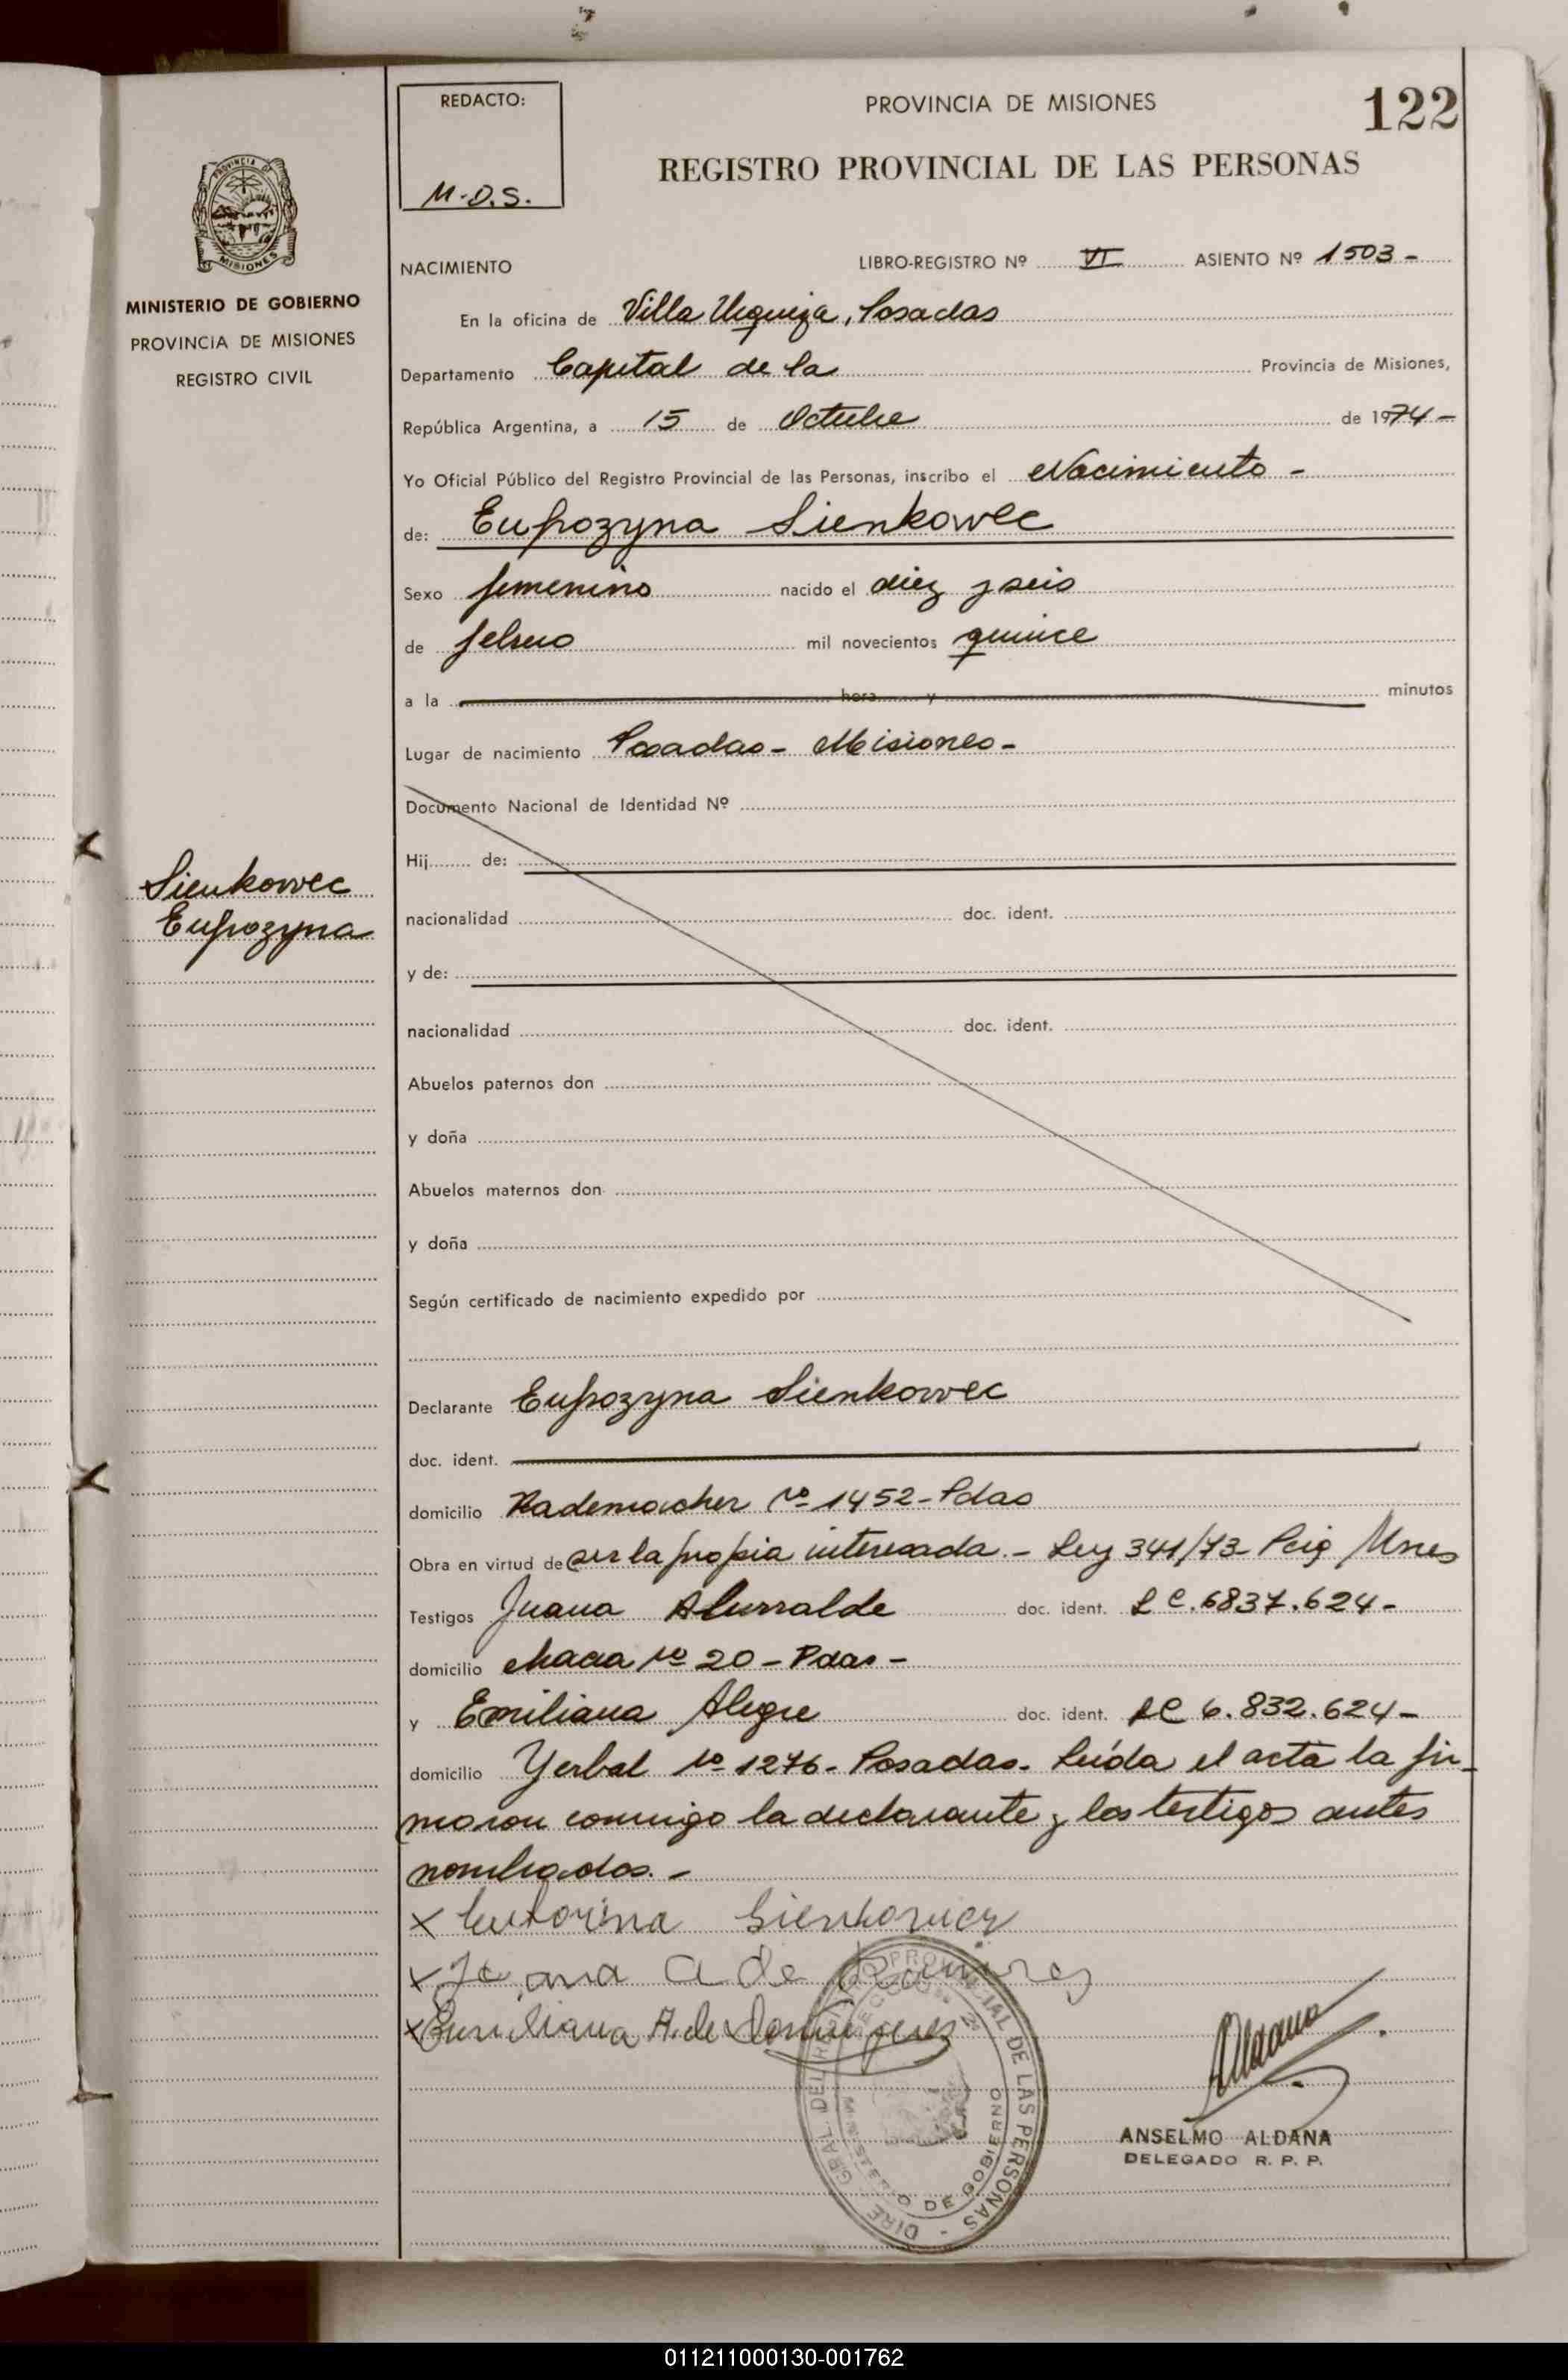 122
REDACTO:
M.D.S.
PROVINCIA DE MISIONES
REGISTRO PROVINCIAL DE LAS PERSONAS
PROVINCIA DE
MISIONES
MINISTERIO DE GOBIERNO
PROVINCIA DE MISIONES
REGISTRO CIVIL
NACIMIENTO LIBRO-REGISTRO Nº VI ASIENTO Nº 1503-
En la oficina de Villa Urquiza, Posadas
Departamento Capital de la Provincia de Misiones,
República Argentina, a 15 de Octubre de 1974-
Yo Oficial Público del Registro Provincial de las Personas, inscribo el Nacimiento-
de: Eufrozyna Sienkowec
Sexo femenino nacido el diez y seis
de febrero mil novecientos quince
a la hora y minutos
Lugar de nacimiento Posadas- Misiones-
Documento Nacional de Identidad Nº
Hij de:
Sienkowec
Eufrozyna
nacionalidad doc. ident.
y de:
nacionalidad doc. ident.
Abuelos paternos don
y doña
Abuelos maternos don
y doña
Según certificado de nacimiento expedido por
Declarante Eufrozyna Sienkowec
doc. ident.
domicilio Rademacher nº 1452-Pdas
Obra en virtud de ser la propia interesada.- Ley 341/73 Mnes
Testigos Juana Alurralde doc. ident. LC.6837.624-
domicilio chacra nº 20-Pdas-
y Emiliana Alegre doc. ident. LC 6.832.624-
domicilio Yerbal nº 1276- Posadas- Leída el acta la fir-
maron conmigo la declarante y los testigos antes
nombrados.-
x Sienkowicz
x Juana A de Ramirez
x Emiliana A. de Dominguez
DIRE. GRAL. DEL REGISTRO PROVINCIAL DE LAS PERSONAS -
MINISTERIO DE GOBIERNO
Aldana
ANSELMO ALDANA
DELEGADO R. P. P.
011211000130-001762